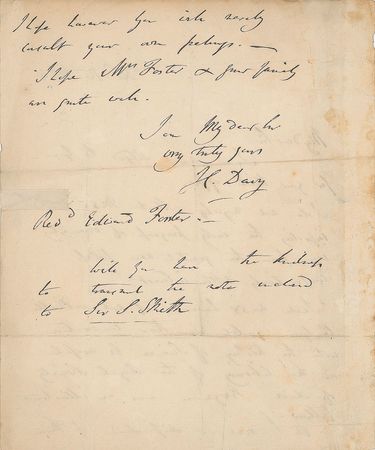 I hope however you will merely
consult your own feelings. —
I hope Mrs Foster & your family
are quite well.
I am My dear Sir
very truly yours
H. Davy
Revd Edward Foster. —
Will you have the kindness
to transmit the note enclosed
to Sir S. Skith